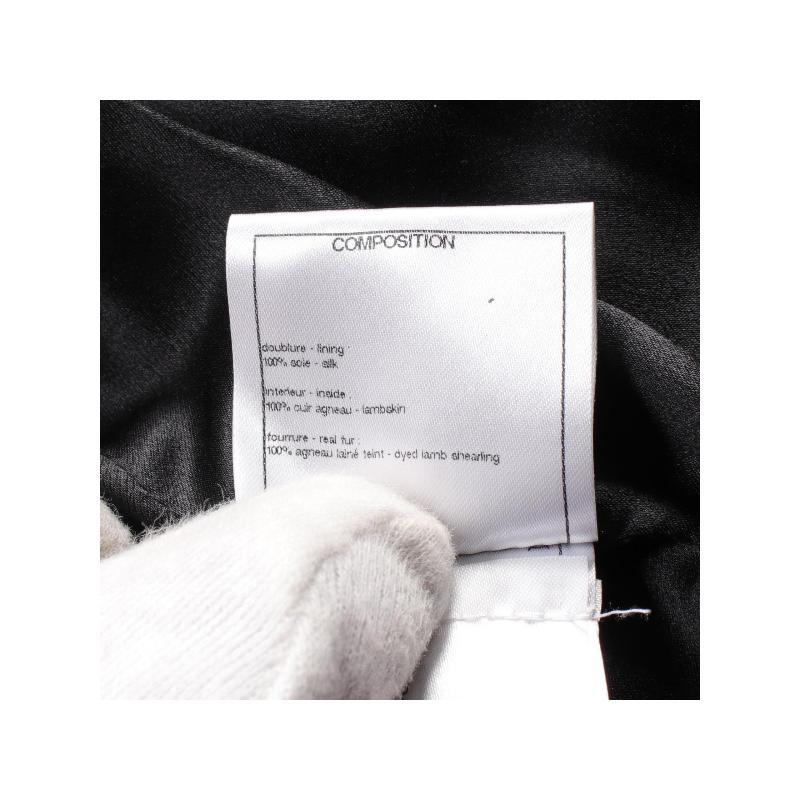 COMPOSITION
doublure - lining :
100% soie - silk
interieur - inside :
100% cuir agneau - lambskin
fourrure - real fur :
100% agneau lainé teint - dyed lamb shearling